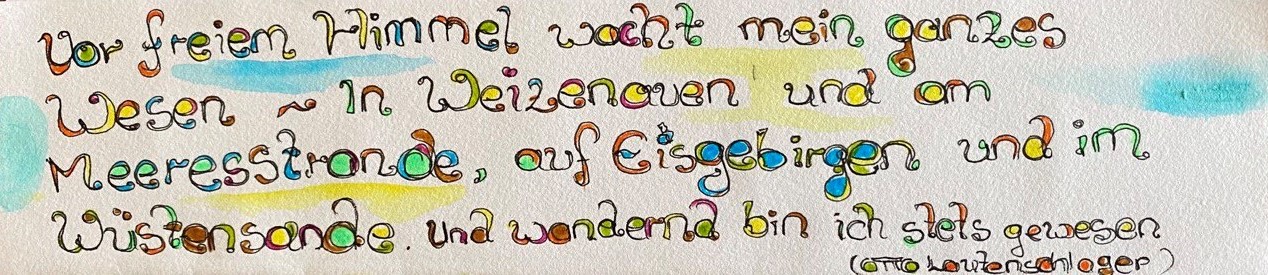 Vor freiem Himmel wacht mein ganzes
Wesen ~ In Weizenauen und am
Meeresstrande, auf Eisgebirgen und im
Wüstensande. Und wandernd bin ich stets gewesen
(Otto Lautenschlager)